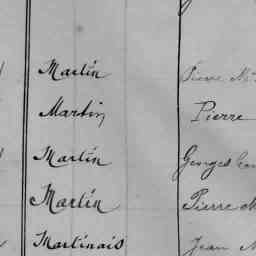 Martin Pierre M
Martin Pierre
Martin Georges
Martin Pierre M
Martinais Jean M